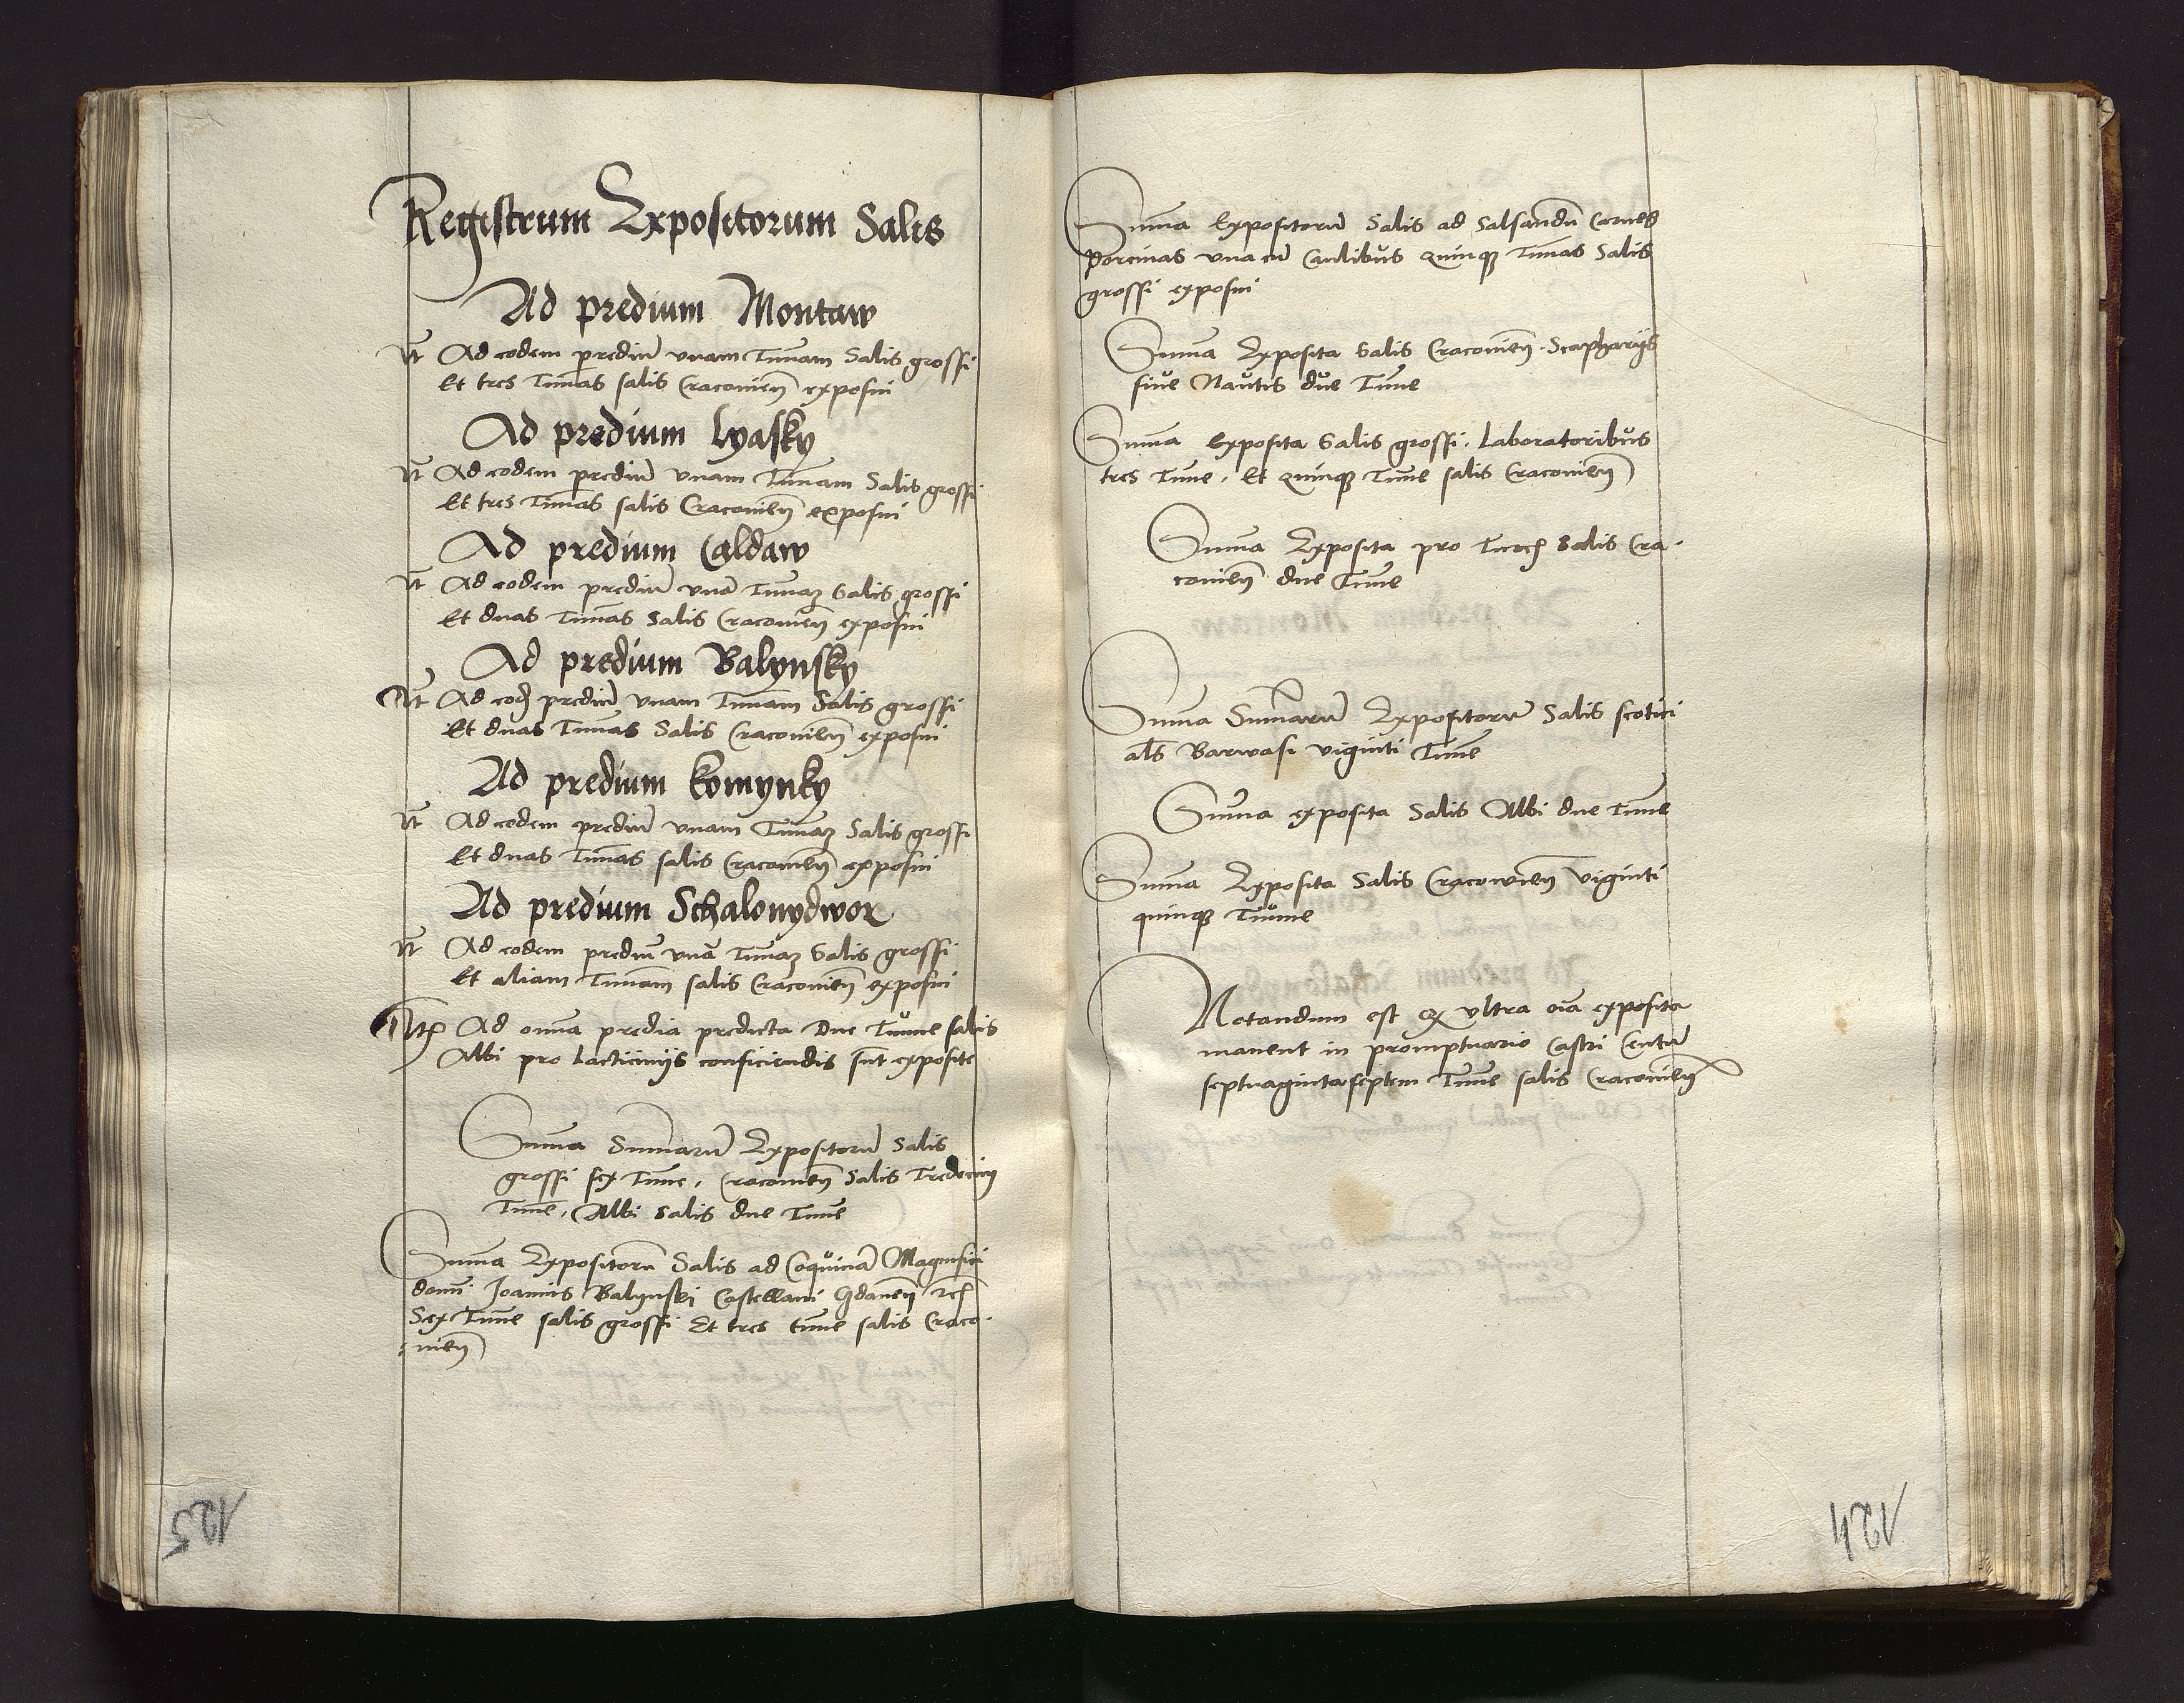 Registrum Expositorum Salis
Ad predium Montaw
It Ad eodem prediũ vnam Tunnam Salis grossi
Et tres Tunnas salis Cracouieñ exposui
Ad predium Lyasky
It Ad eodem prediũ vnam Tunnam Salis grossi
Et tres Tunnas salis Cracouieñ exposui
Ad predium Caldaw
It Ad eodem prediũ vnã Tunnaʒ Salis grossi
Et duas Tunnas Salis Cracouieñ exposui
Ad predium Balynsky
It Ad eod prediũ vnam Tunnam Salis grossi
Et duas Tunnas Salis Cracouieñ exposui
Ad predium Komynky
It Ad eodem prediũ vnam Tunnaʒ Salis grossi
Et duas Tunnas salis Cracouieñ exposui
Ad predium Schalonydwor
It Ad eodem prediũ vnã Tunnaʒ Salis grossi
Et aliam Tunnam salis Cracouieñ exposui
Itẽ Ad omnia predia predicta Due Tunne salis
Albi pro Lacticinijs conficiendis sũt exposite
Summa Summarũ Expositorũ Salis
grossi sex Tunne, Cracouieñ Salis Tredecim
Tunne, Albi Salis due Tunne
Summa Expositorũ Salis ad Coquinã Magnifici
domi Joannis Balynski Castellani Gdaneñ etc
Sex Tunne salis grossi Et tres tunne salis Craco-
:uieñ
125
Summa Expositorũ Salis ad Salsandũ Carnes
Porcinas vna cũ Caulibus quinqʒ Tunnas Salis
grossi exposui
Summa Exposita Salis Cracouieñ Scapharijs
siue Nautis due Tunne
Summa Exposita Salis grossi Laboratoribus
tres Tunne, Et quinqʒ Tunne salis Cracouieñ
Summa Exposita pro Salis Cra-
couieñ due Tunne
Summa Summarũ Expositorũ Salis scotici
als Barwasi viginti Tunne
Summa exposita Salis Albi due Tunne
Summa Exposita Salis Cracowieñ Viginti
quinqʒ Tunne
Notandum est qʒ vltra oĩa exposita
manent in promptuario Castri Centũ
septuagintaseptem Tunne salis Cracouieñ
124